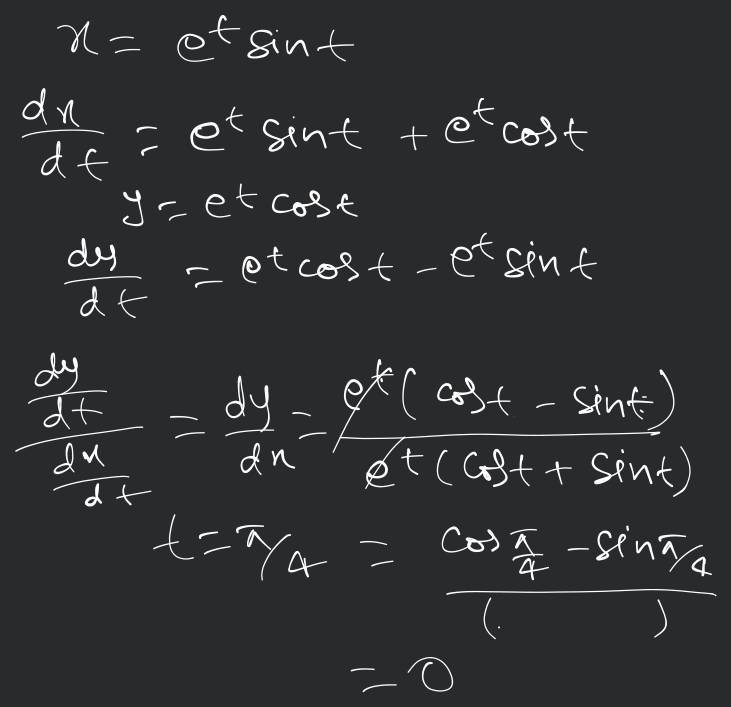 x = e^t sin t
dx/dt = e^t sin t + e^t cos t
y = e^t cos t
dy/dt = e^t cos t - e^t sin t
(dy/dt)/(dx/dt) = dy/dx = e^t(cos t - sin t)/e^t(cos t + sin t)
t = π/4 = (cos π/4 - sin π/4)/( )
= 0